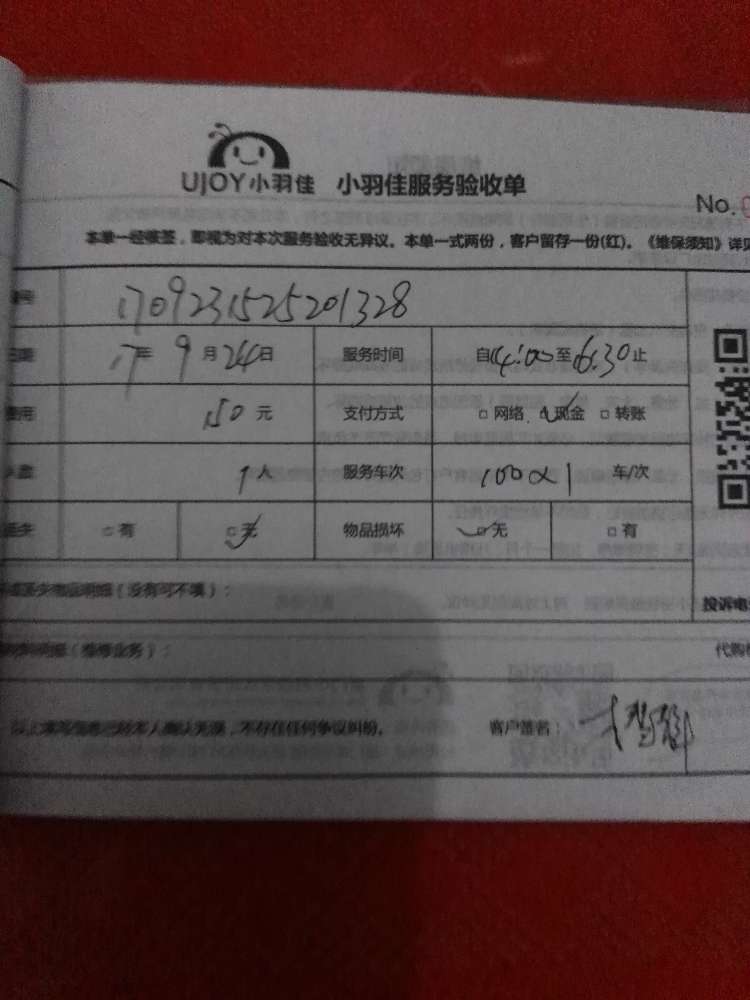 UJOY小羽佳 小羽佳服务验收单
No.
本单一经签，即视为对本次服务验收无异议。本单一式两份，客户留存一份(红)。《维保须知》详见
号 1709231525201328
17年9月24日 服务时间 自14:00至16:30止
费用 150元 支付方式 □网络 □现金 □转账
人数 1人 服务车次 车/次
丢失 □有 □无 物品损坏 □无 □有
(没有可不填)：
投诉电
明细(维修业务)：
代购
以上填写信息已经本人确认无误，不存在任何争议纠纷。 客户签名：